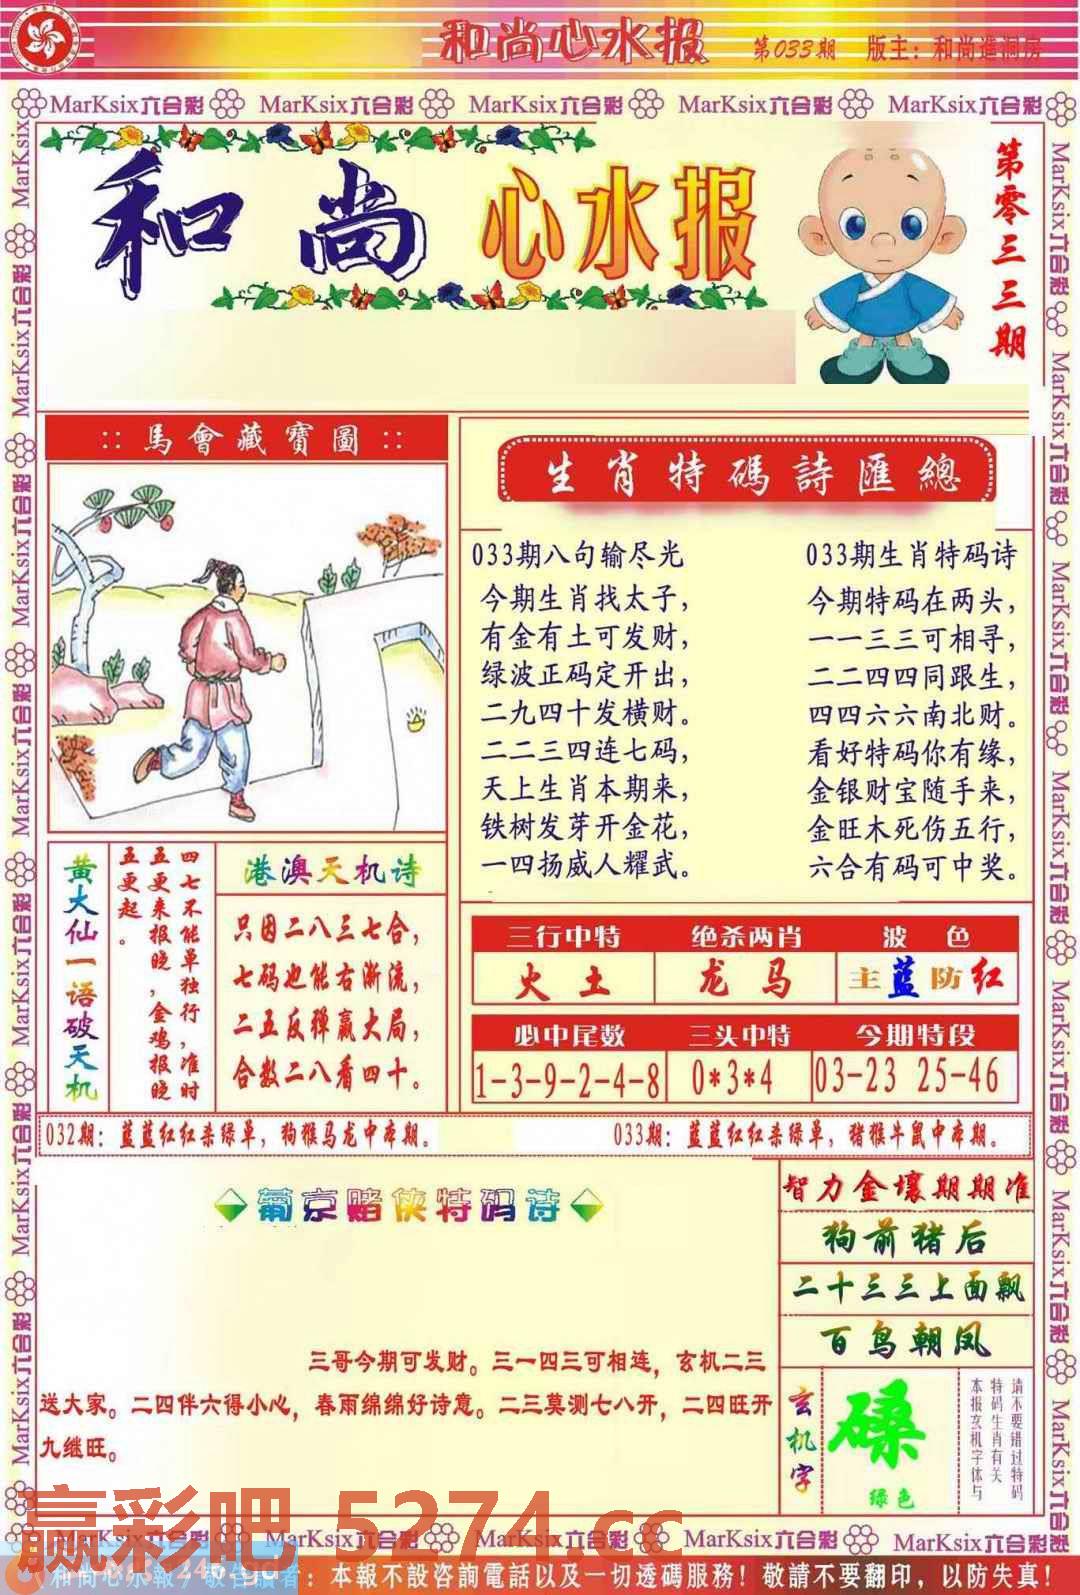 和尚心水报 第033期 版主：和尚進洞房
MarKsix六合彩 MarKsix六合彩 MarKsix六合彩 MarKsix六合彩 MarKsix六合彩
和尚心水报
第零三三期
::馬會藏寶圖::
生肖特碼詩匯總
033期八句输尽光
今期生肖找太子，
有金有土可发财，
绿波正码定开出，
二九四十发横财。
二二三四连七码，
天上生肖本期来，
铁树发芽开金花，
一四扬威人耀武。
033期生肖特码诗
今期特码在两头，
一一三三可相寻，
二二四四同跟生，
四四六六南北财。
看好特码你有缘，
金银财宝随手来，
金旺木死伤五行，
六合有码可中奖。
黄大仙一语破天机
四七不能单独行，准时
五更来报晓，金鸡报晓
五更起。
港澳天机诗
只因二八三七合，
七码也能右渐流，
二五反弹赢大局，
合数二八看四十。
三行中特 绝杀两肖 波色
火土 龙马 主蓝防红
必中尾数 三头中特 今期特段
1-3-9-2-4-8 0*3*4 03-23 25-46
032期：蓝蓝红红杀绿单，狗猴马龙中本期。
033期：蓝蓝红红杀绿单，猪猴牛鼠中本期。
葡京赌侠特码诗
三哥今期可发财。三一四三可相连，玄机二三
送大家。二四伴六得小心，春雨绵绵好诗意。二三莫测七八开，二四旺开
九继旺。
智力金壤期期准
狗前猪后
二十三三上面飘
百鸟朝凤
玄机字
磉
绿色
请不要错过特码
特码生肖有关
本报玄机字体与
赢彩吧 5274.cc
MarKsix六合彩 MarKsix六合彩 MarKsix六合彩 MarKsix六合彩 MarKsix六合彩
和尚心水報 / 敬告讀者：本報不設咨詢電話以及一切透碼服務！敬請不要翻印，以防失真！